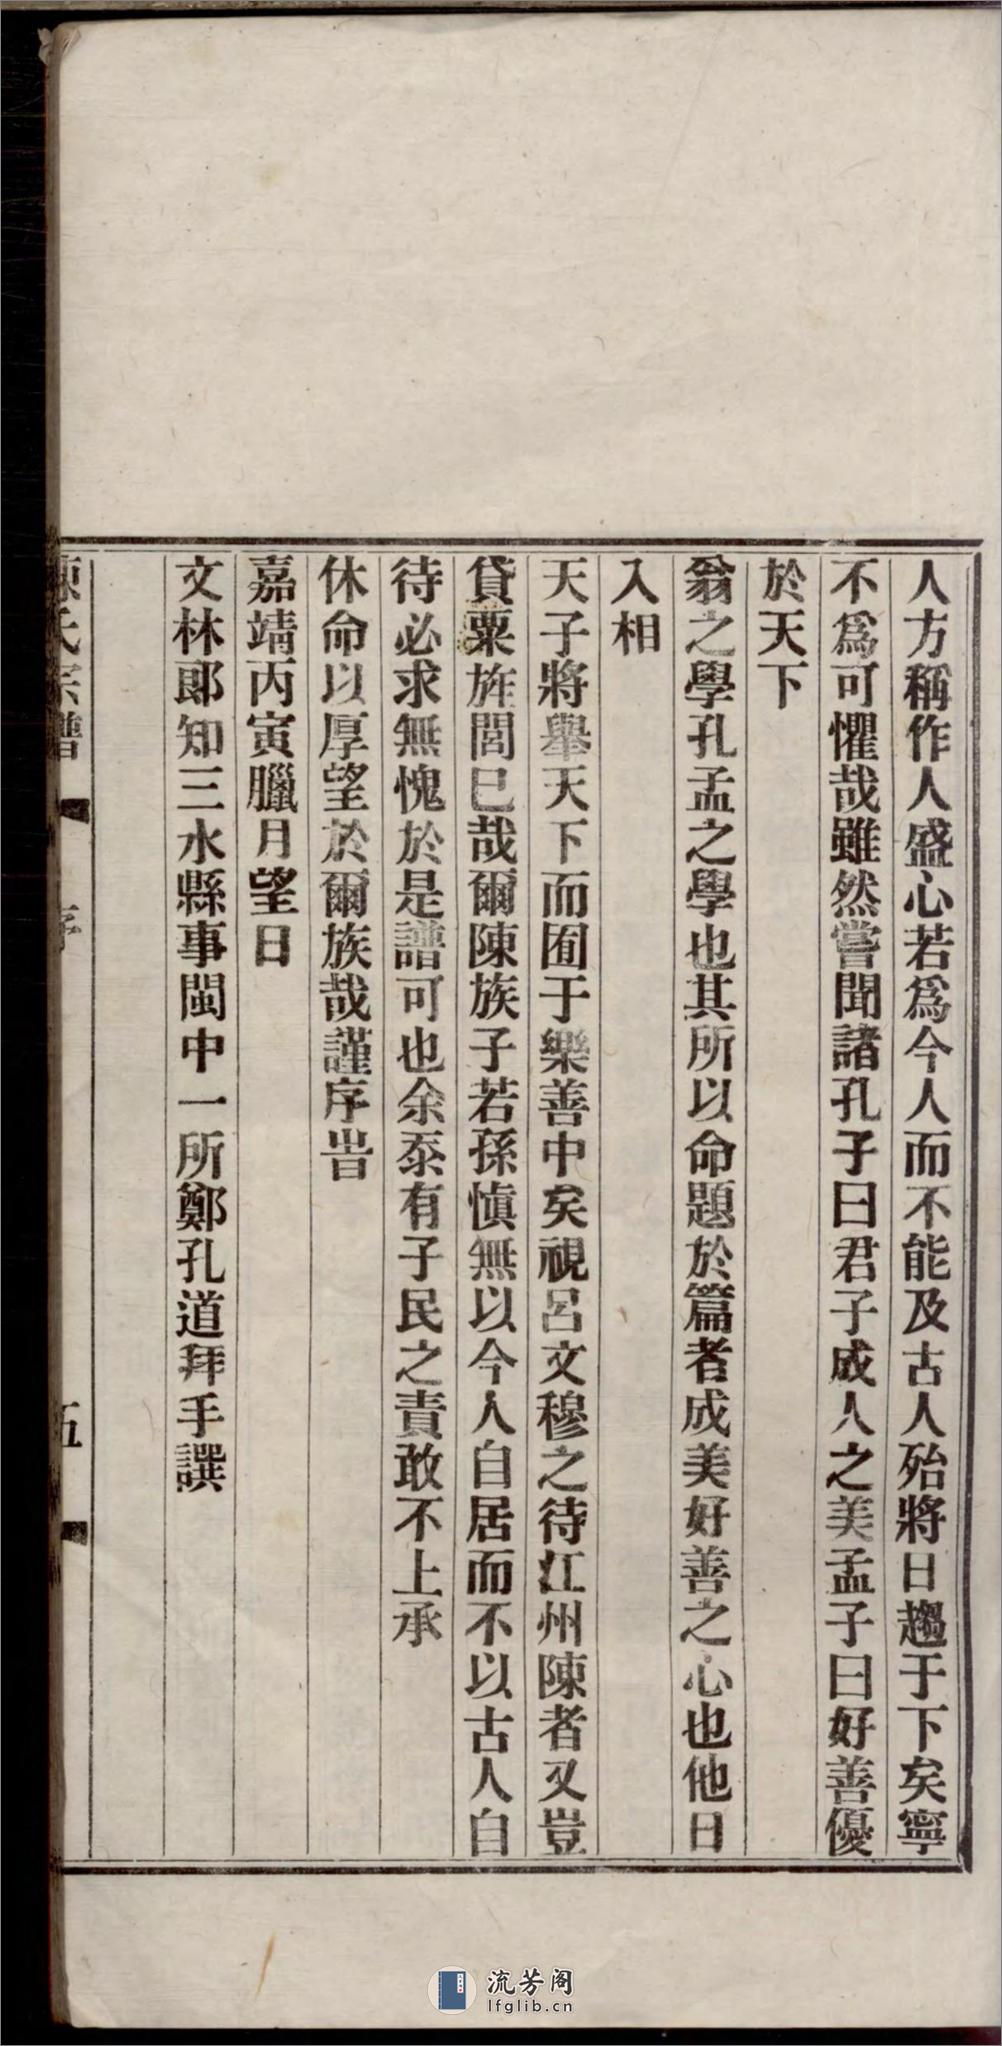 人方稱作人盛心若爲今人而不能及古人殆將日趨于下矣寧
不爲可懼哉雖然嘗聞諸孔子曰君子成人之美孟子曰好善優
於天下
翁之學孔孟之學也其所以命題於篇者成美好善之心也他日
入相
天子將舉天下而囿于樂善中矣視呂文穆之待江州陳者又豈
貸粟旌閭已哉爾陳族子若孫慎無以今人自居而不以古人自
待必求無愧於是譜可也余忝有子民之責敢不上承
休命以厚望於爾族哉謹序旹
嘉靖丙寅臘月望日
文林郎知三水縣事閩中一所鄭孔道拜手譔
陳氏宗譜 序 五
流芳阁
lfglib.cn